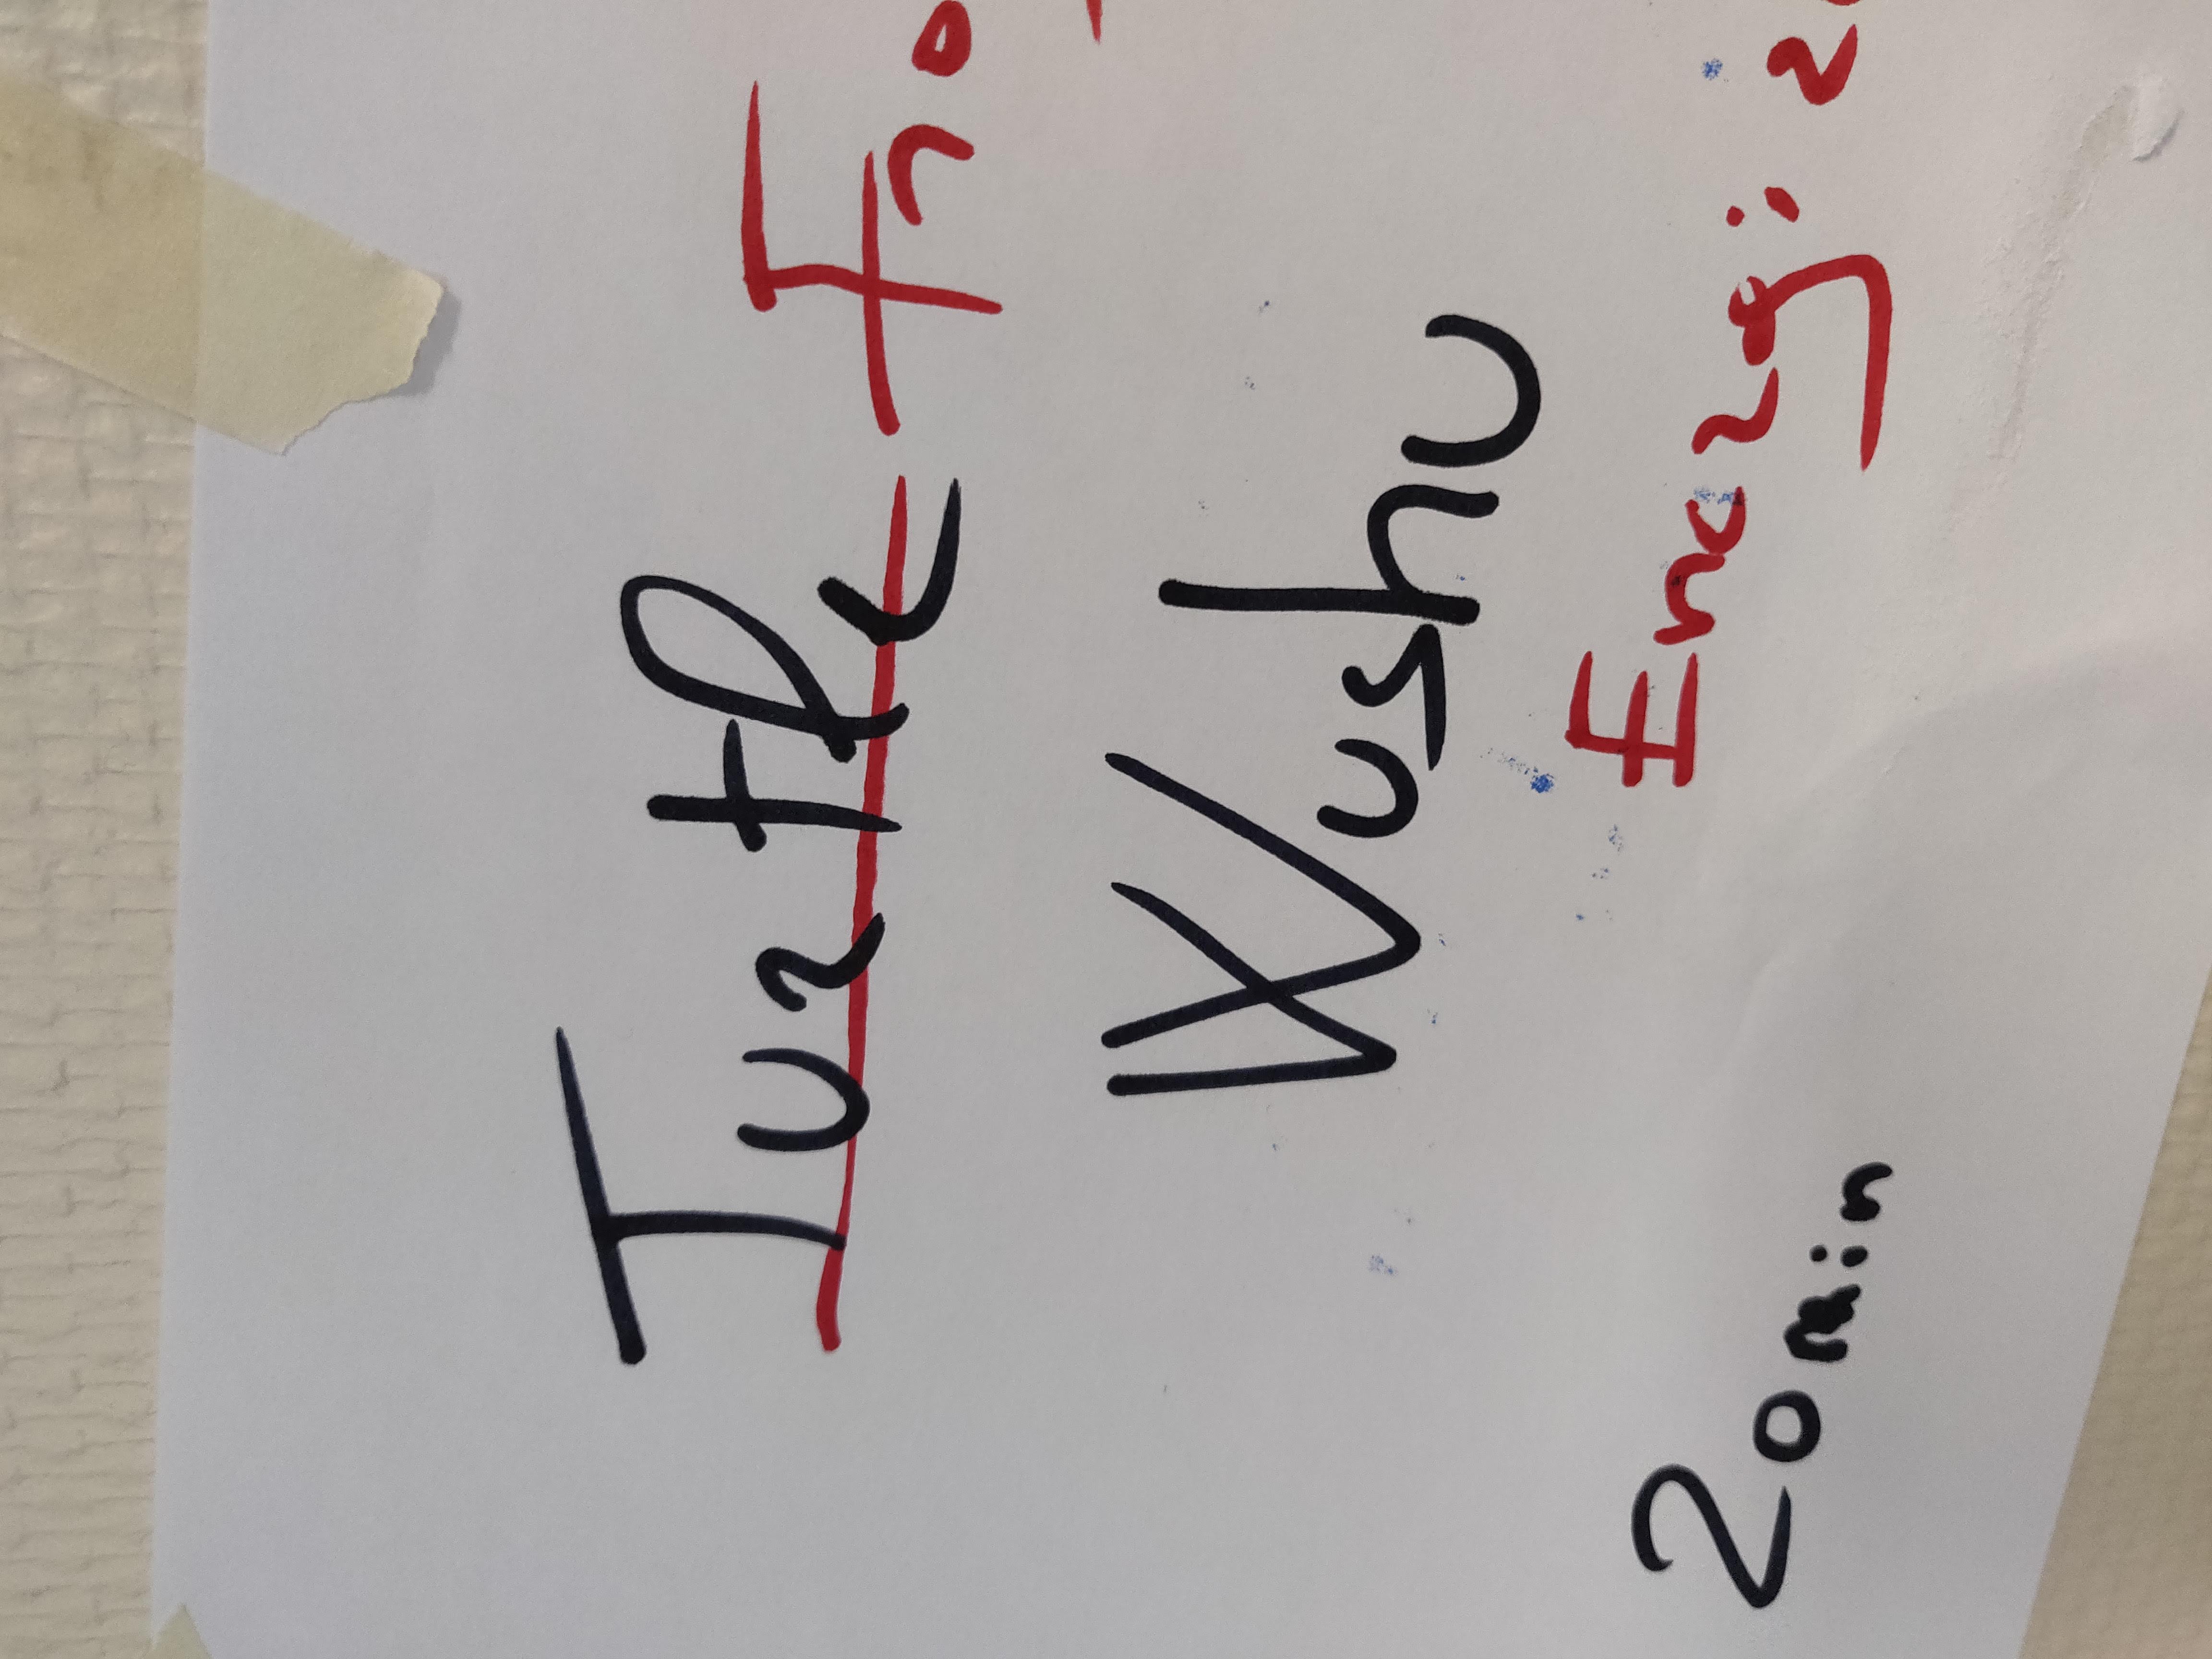 Turtle Fro
Wushu
Energi
20min